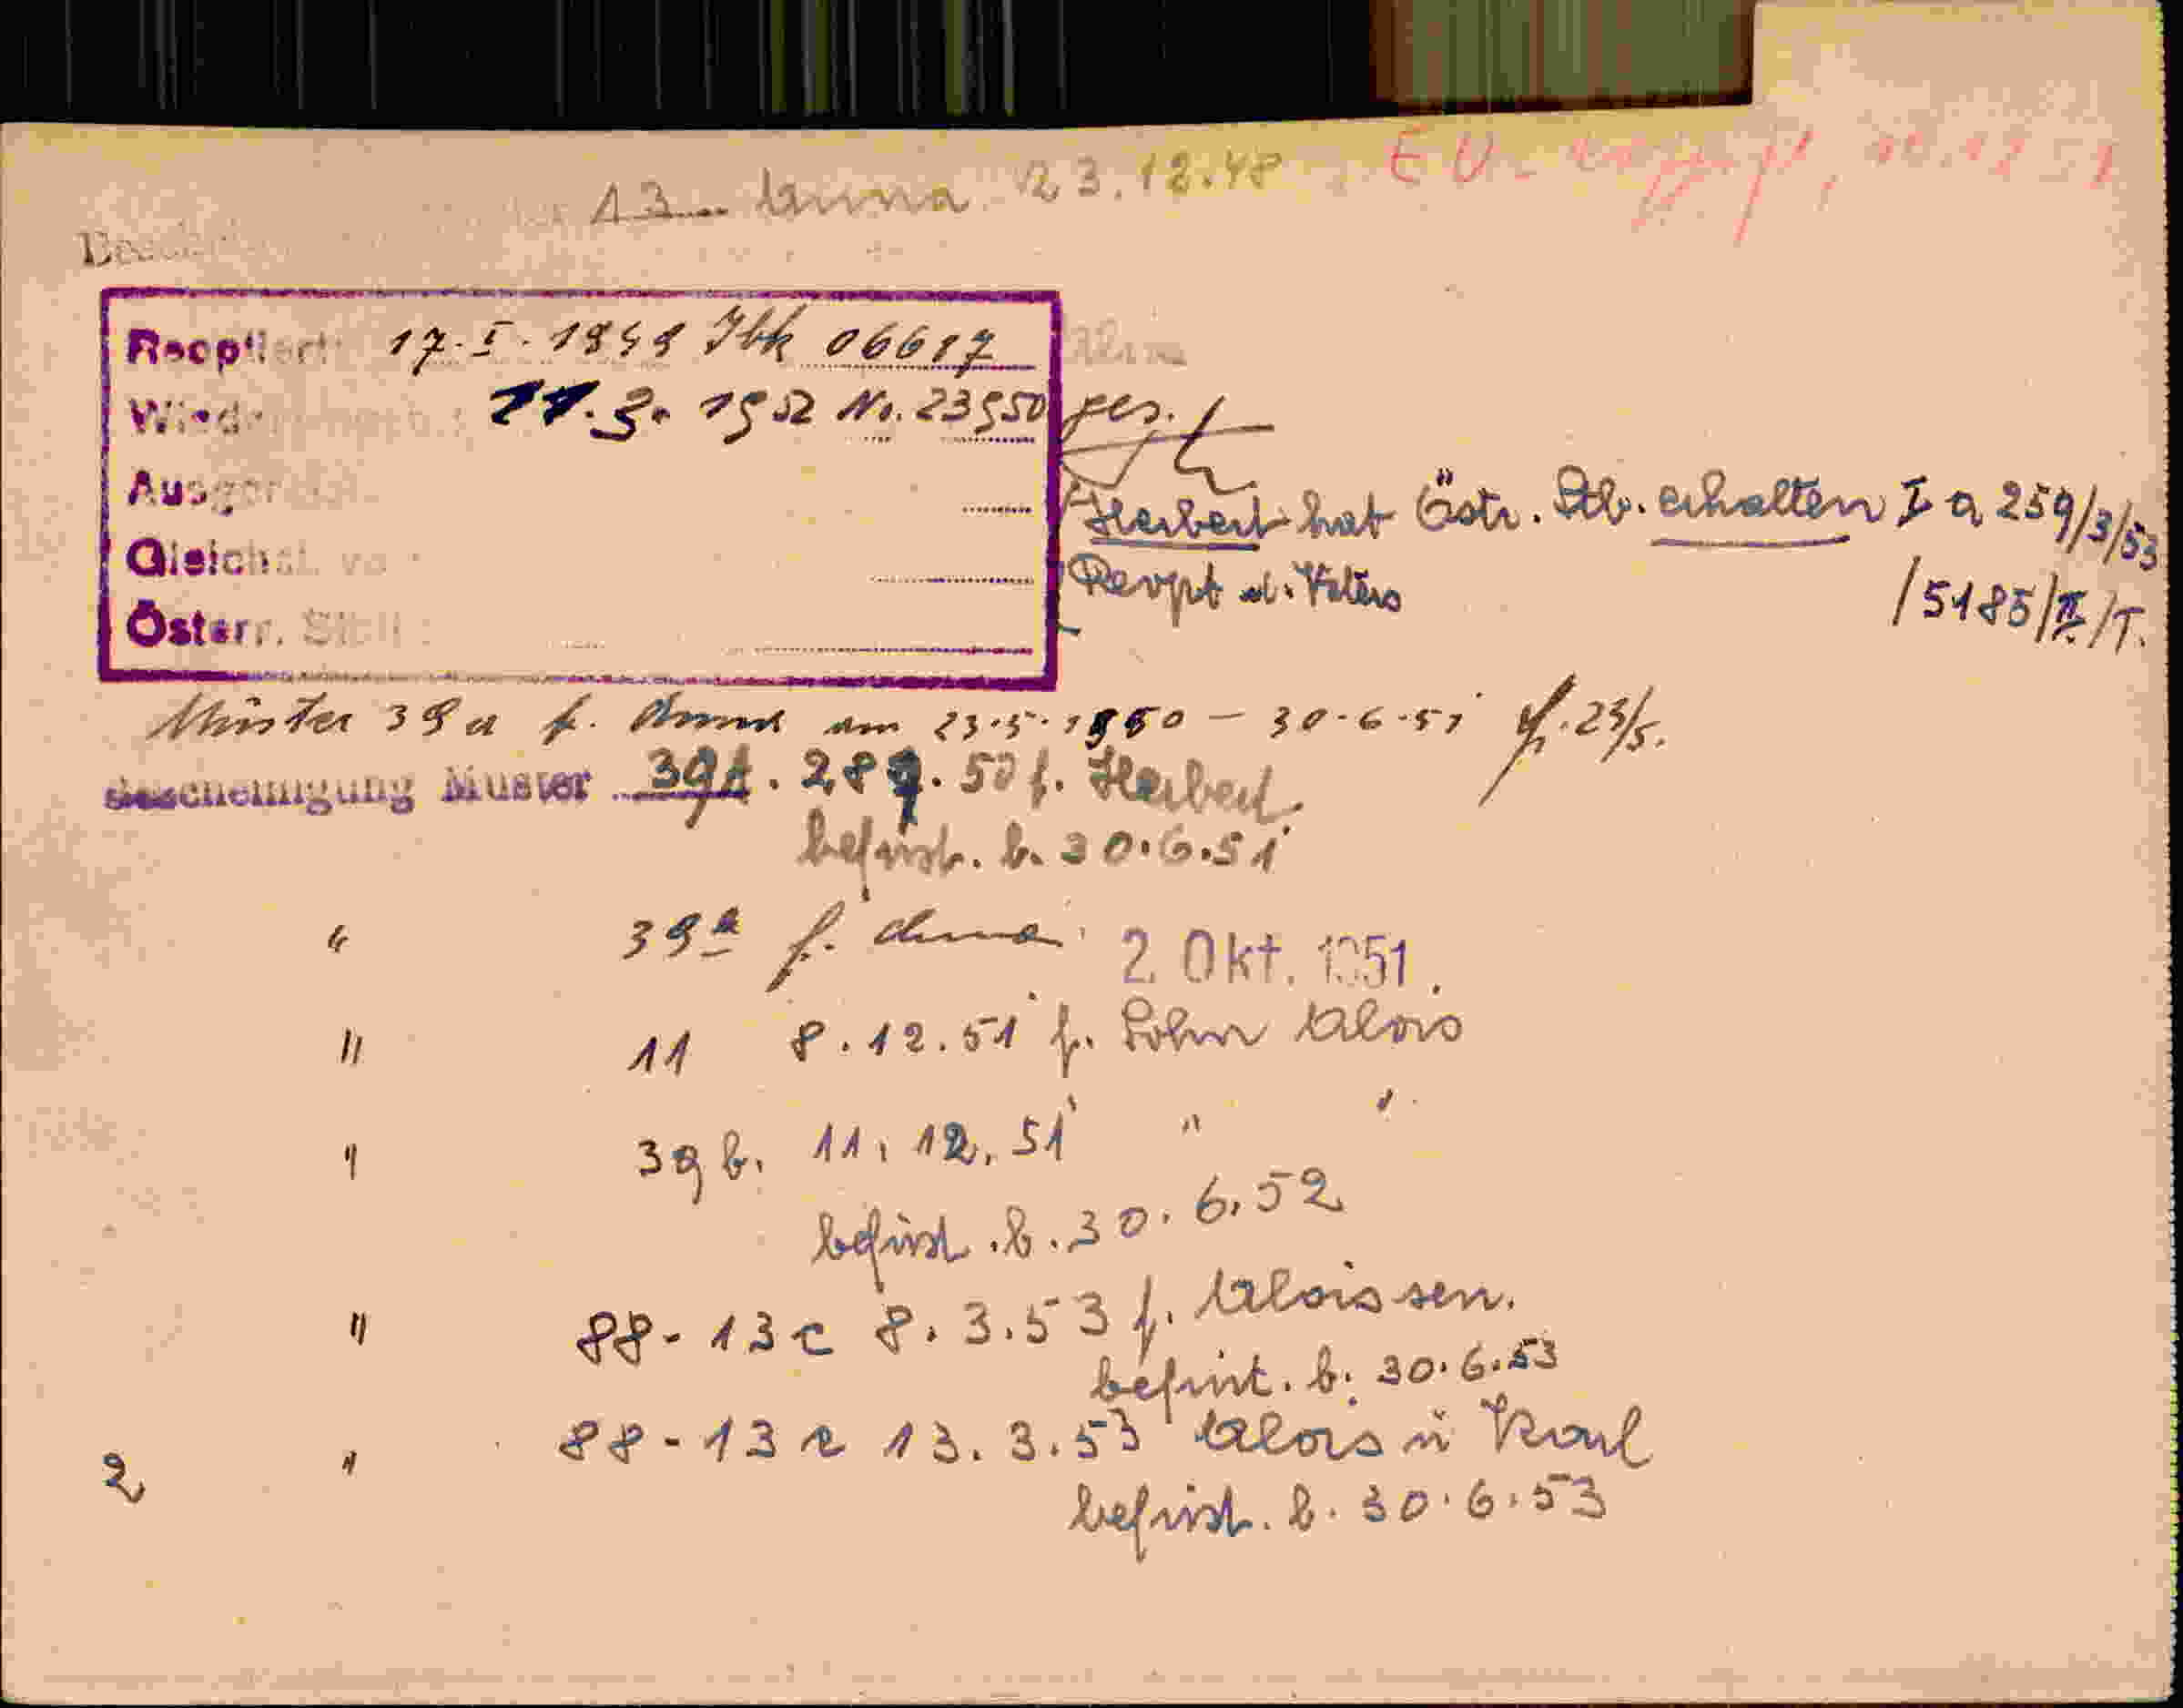 13 Anna 23.12.48 EV-
17.I.1949 Ibk 06617
11.3.1952 No. 23950 ges.
Herbert hat Östr. Stb. erhalten I a 259/3/53
/5185/II/T.
Österr.
Muster 39 a f. Anna am 23.5.1950 – 30.6.51 23/5.
Bescheinigung Muster 39A. 289.50 f. Herbert
befrist. b. 30.6.51
" 39a f. Anna 2. Okt. 1951.
" 11 8.12.51 f. Sohn Alois
" 39 b. 11.12.51 " "
befrist. b. 30.6.52
" 88-13c 8.3.53 f. Alois sen.
befrist. b. 30.6.53
2 " 88-13c 13.3.53 Alois u Karl
befrist. b. 30.6.53